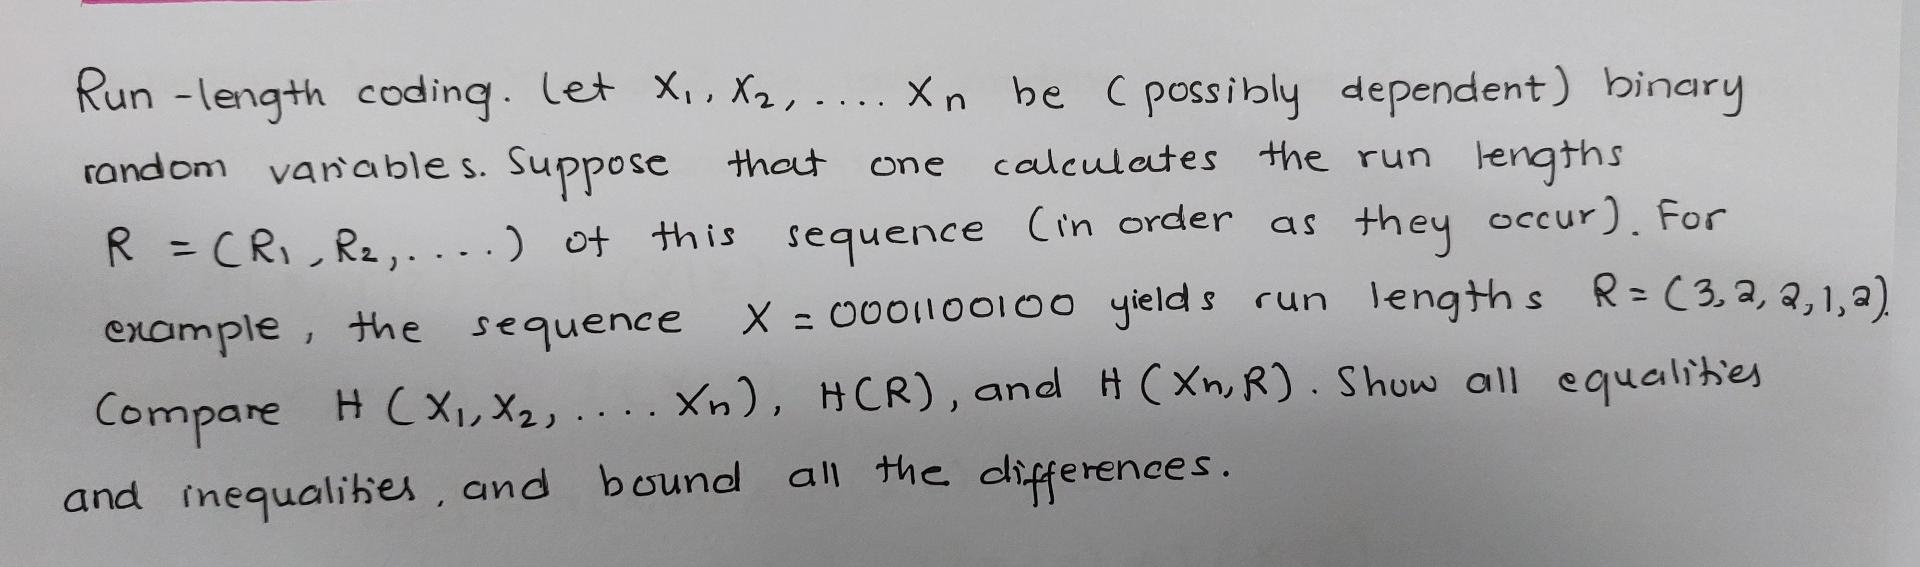 Run-length coding. Let X1, X2, .... Xn be (possibly dependent) binary
random variables. Suppose that one calculates the run lengths
R = (R1, R2, ....) of this sequence (in order as they occur). For
example, the sequence X = 0001100100 yields run lengths R = (3, 2, 2, 1, 2).
Compare H (X1, X2, .... Xn), H(R), and H (Xn, R). Show all equalities
and inequalities, and bound all the differences.